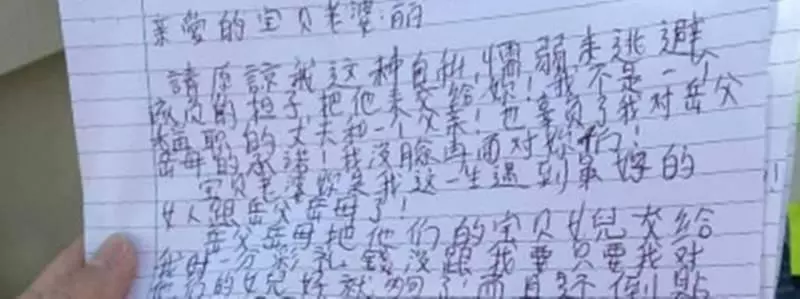 亲愛的宝贝老婆:丽
請原諒我这种自私,懦弱来逃避
应负的担子,把他来交給妳!我不是一个
稱职的丈夫和一个父亲!也辜负了我对岳父
岳母的承诺!我没脸再面对妳们!
宝贝老婆妳是我这一生遇到最好的
女人跟岳父岳母了!
岳父岳母把他们的宝贝女兒交給
我时一分彩礼錢没跟我要只要我对
他们的女兒好就夠了而且还倒點